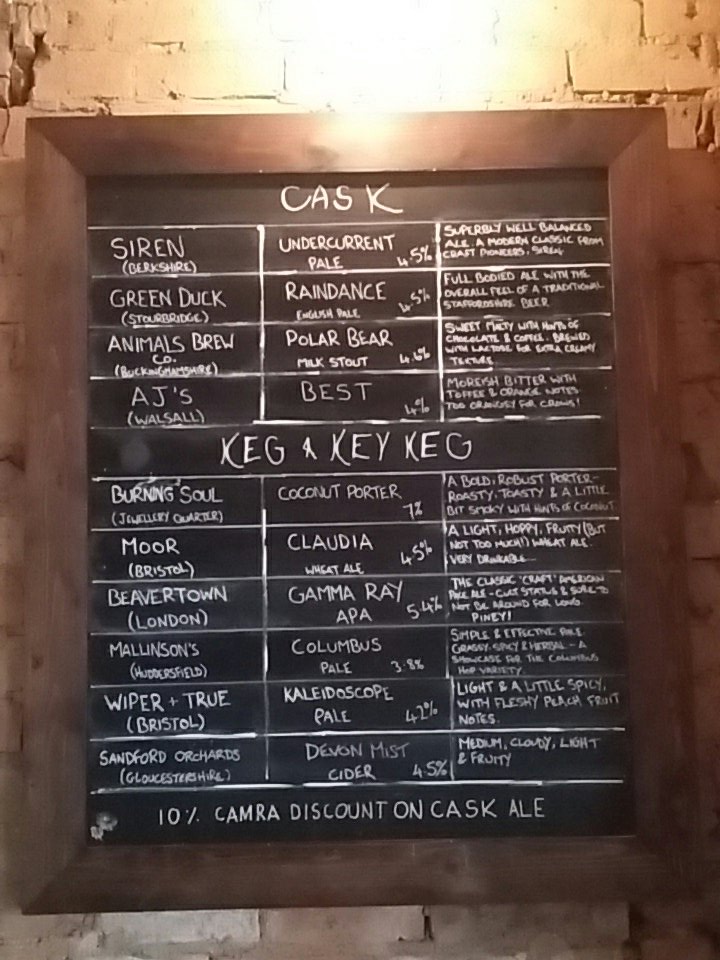 CASK
SIREN
(BERKSHIRE)
UNDERCURRENT
PALE
4.5%
SUPERBLY WELL BALANCED
ALE. A MODERN CLASSIC FROM
CRAFT PIONEERS, SIREN.
GREEN DUCK
(STOURBRIDGE)
RAINDANCE
ENGLISH PALE
4.5%
FULL BODIED ALE WITH THE
OVERALL FEEL OF A TRADITIONAL
STAFFORDSHIRE BEER
ANIMALS BREW
CO.
(BUCKINGHAMSHIRE)
POLAR BEAR
MILK STOUT
4.6%
SWEET MALTY WITH HINTS OF
CHOCOLATE & COFFEE. BREWED
WITH LACTOSE FOR EXTRA CREAMY
TEXTURE
AJ'S
(WALSALL)
BEST
4%
MOREISH BITTER WITH
TOFFEE & ORANGE NOTES
TOO ORANGEY FOR CROWS!
KEG & KEY KEG
BURNING SOUL
(JEWELLERY QUARTER)
COCONUT PORTER
7%
A BOLD, ROBUST PORTER-
ROASTY, TOASTY & A LITTLE
BIT SMOKY WITH HINTS OF COCONUT
MOOR
(BRISTOL)
CLAUDIA
WHEAT ALE
4.5%
A LIGHT, HOPPY, FRUITY (BUT
NOT TOO MUCH!) WHEAT ALE.
VERY DRINKABLE...
BEAVERTOWN
(LONDON)
GAMMA RAY
APA
5.4%
THE CLASSIC 'CRAFT' AMERICAN
PALE ALE - CULT STATUS & SURE TO
NOT BE AROUND FOR LONG.
PINEY!
MALLINSON'S
(HUDDERSFIELD)
COLUMBUS
PALE
3.8%
SIMPLE & EFFECTIVE PALE.
GRASSY, SPICY & HERBAL - A
SHOWCASE FOR THE COLUMBUS
HOP VARIETY
WIPER + TRUE
(BRISTOL)
KALEIDOSCOPE
PALE
4.2%
LIGHT & A LITTLE SPICY,
WITH FLESHY PEACH FRUIT
NOTES.
SANDFORD ORCHARDS
(GLOUCESTERSHIRE)
DEVON MIST
CIDER
4.5%
MEDIUM, CLOUDY, LIGHT
& FRUITY
10% CAMRA DISCOUNT ON CASK ALE